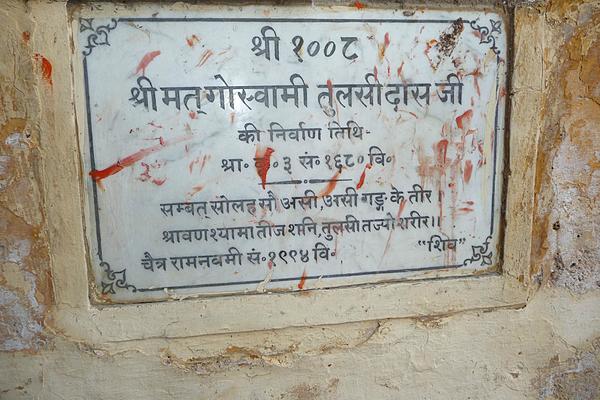 श्री १००८
श्रीमत्गोस्वामी तुलसीदास जी
की निर्वाण तिथि-
श्रा॰ कृ॰ ३ सं॰ १६८० वि॰
सम्बत् सोलह सौ असी, असी गङ्ग के तीर।
श्रावण श्यामा तीज शनि, तुलसी तज्यो शरीर।।
"शिव"
चैत्र रामनवमी सं॰ १९९४ वि॰